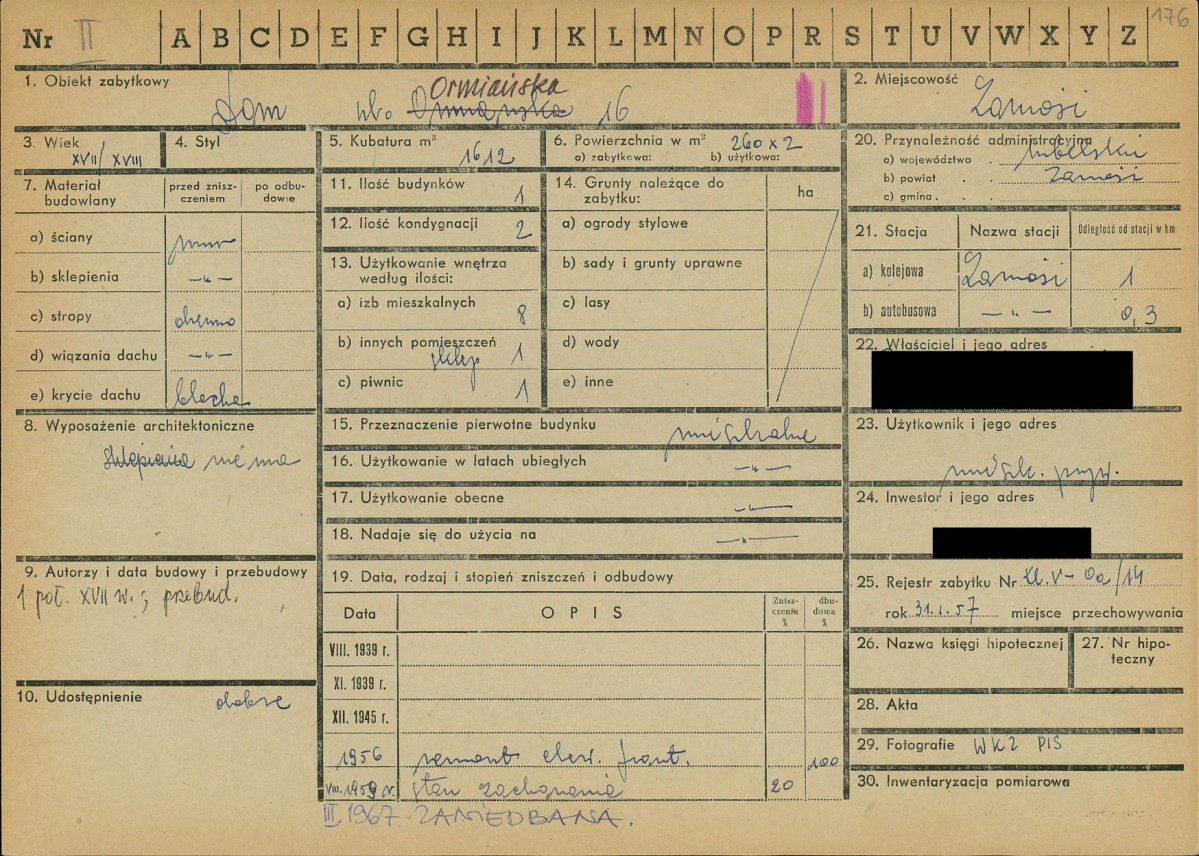 Nr II A B C D E F G H I J K L M N O P R S T U V W X Y Z 176
1. Obiekt zabytkowy
Dom ul. Ormiańska 16
2. Miejscowość
Zamość
3. Wiek
XVII/XVIII
4. Styl
5. Kubatura m³
1612
6. Powierzchnia w m² 260 x 2
a) zabytkowa: b) użytkowa:
20. Przynależność administracyjna
a) województwo lubelskie
b) powiat Zamość
c) gmina
7. Materiał budowlany
przed zniszczeniem
po odbudowie
a) ściany mur
b) sklepienia —„—
c) stropy drewno
d) wiązania dachu —„—
e) krycie dachu blacha
11. Ilość budynków 1
12. Ilość kondygnacji 2
13. Użytkowanie wnętrza według ilości:
a) izb mieszkalnych 8
b) innych pomieszczeń sklep 1
c) piwnic 1
14. Grunty należące do zabytku:
ha
a) ogrody stylowe
b) sady i grunty uprawne
c) lasy
d) wody
e) inne
21. Stacja Nazwa stacji Odległość od stacji w km
a) kolejowa Zamość 1
b) autobusowa —„— 0,3
22. Właściciel i jego adres
8. Wyposażenie architektoniczne
sklepienia nie ma
15. Przeznaczenie pierwotne budynku
mieszkalne
16. Użytkowanie w latach ubiegłych —„—
17. Użytkowanie obecne —„—
18. Nadaje się do użycia na —„—
23. Użytkownik i jego adres
mieszk. pryw.
24. Inwestor i jego adres
9. Autorzy i data budowy i przebudowy
1 poł. XVII w.; przebud.
10. Udostępnienie dobre
19. Data, rodzaj i stopień zniszczeń i odbudowy
Data OPIS Zniszczenia % dbudowa %
VIII. 1939 r.
XI. 1939 r.
XII. 1945 r.
1956 remont elew. front. 100
VIII. 1959 r. stan zachowania 20
III 1967 ZANIEDBANA.
25. Rejestr zabytku Nr Kl. V-0a/14
rok 31.I.57 miejsce przechowywania
26. Nazwa księgi hipotecznej
27. Nr hipoteczny
28. Akta
29. Fotografie WKZ PIS
30. Inwentaryzacja pomiarowa